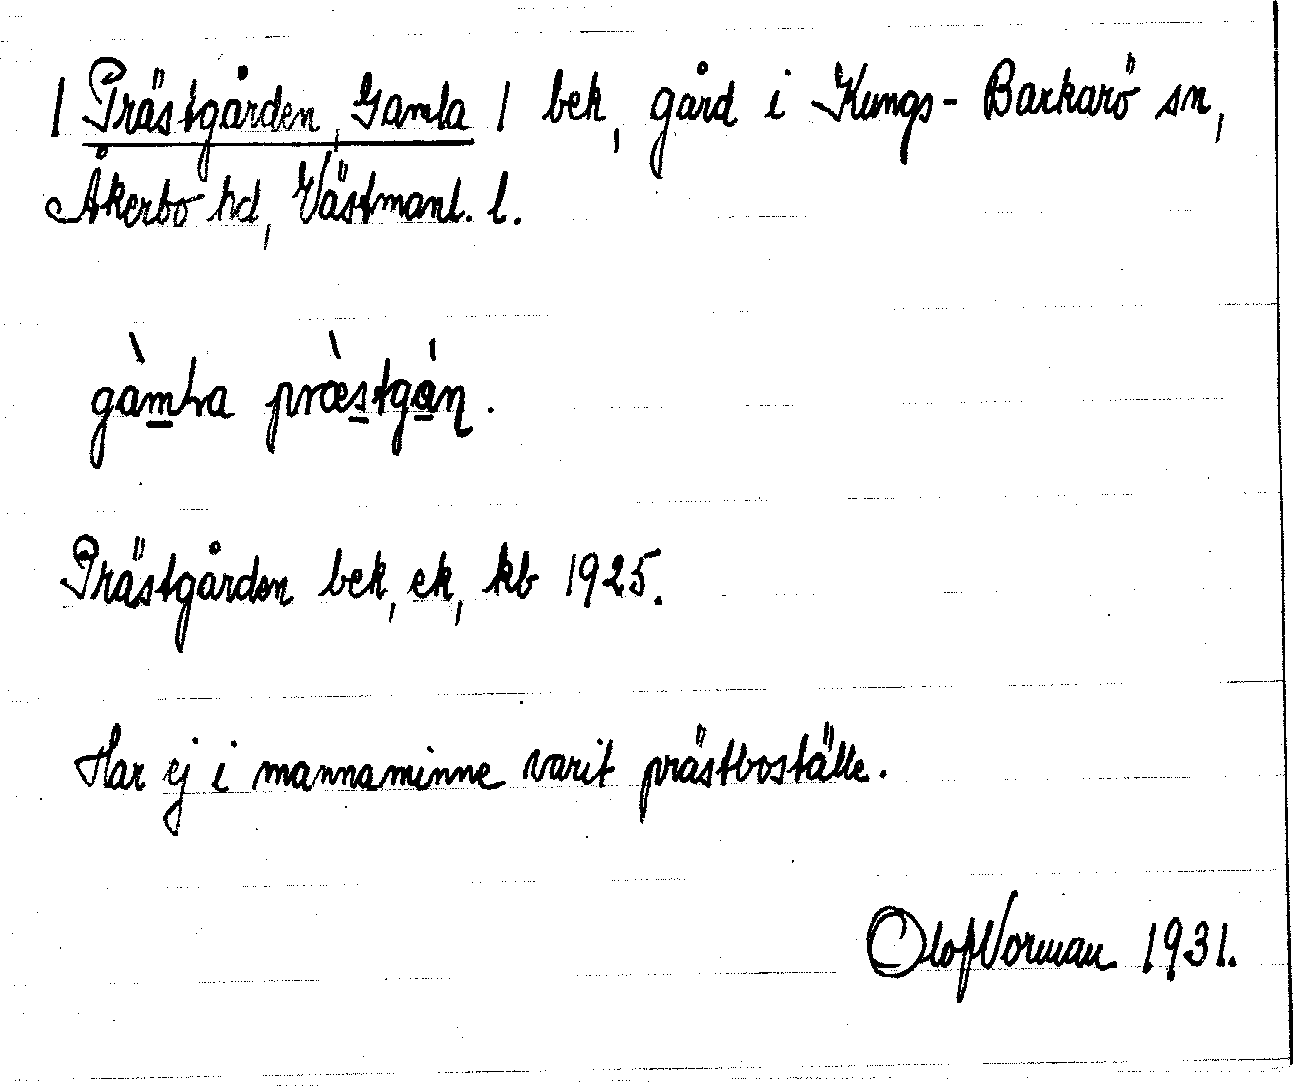 / Prästgården, Gamla / bek, gård i Kungs-Barkarö sn,
Åkerbo hd, Västmanl. l.
gàmla præ̀stgán.
Prästgården bek, ek, kb 1925.
Har ej i mannaminne varit prästboställe.
Olof Norman 1931.